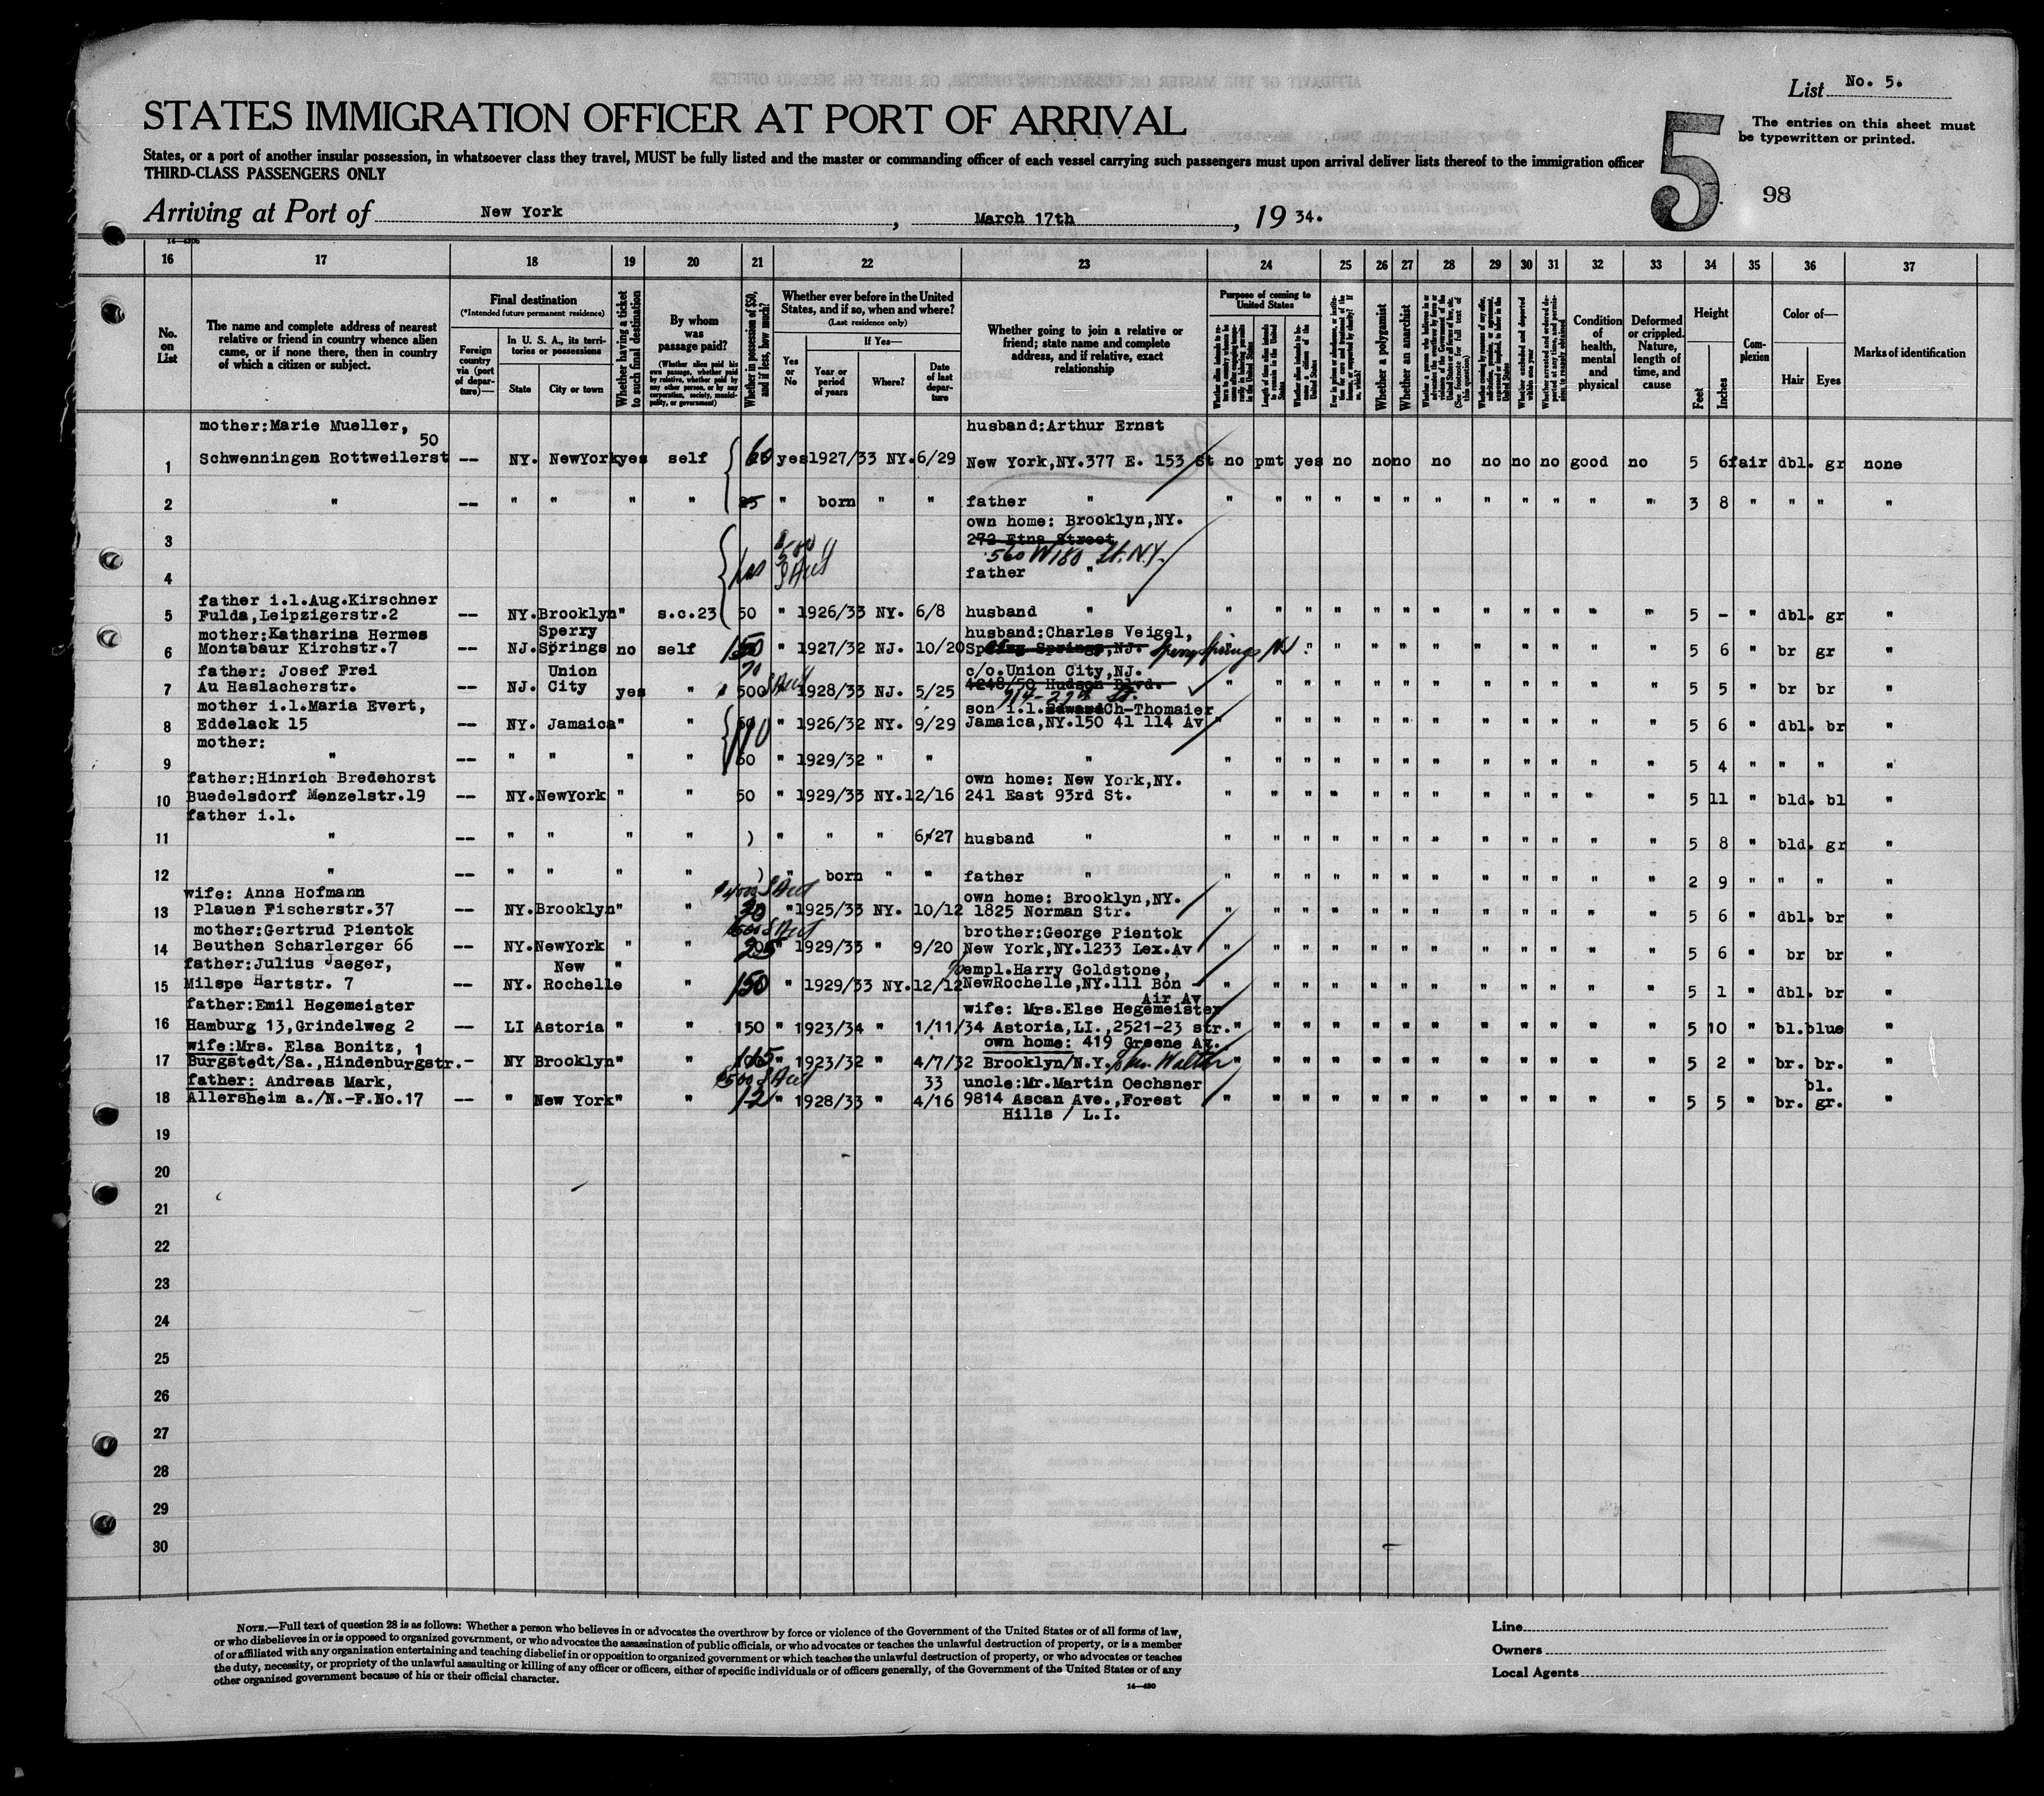 List No. 5.
STATES IMMIGRATION OFFICER AT PORT OF ARRIVAL
5
The entries on this sheet must
be typewritten or printed.
States, or a port of another insular possession, in whatsoever class they travel, MUST be fully listed and the master or commanding officer of each vessel carrying such passengers must upon arrival deliver lists thereof to the immigration officer
THIRD-CLASS PASSENGERS ONLY
98
Arriving at Port of New York, March 17th, 19 34.
16 17 18 19 20 21 22 23 24 25 26 27 28 29 30 31 32 33 34 35 36 37
No. on List
The name and complete address of nearest relative or friend in country whence alien came, or if none there, then in country of which a citizen or subject.
Final destination
(*Intended future permanent residence)
Foreign country via (port of departure)—
In U. S. A., its territories or possessions
State
City or town
Whether having a ticket to such final destination
By whom was passage paid?
(Whether alien paid his own passage, whether paid by relative, whether paid by any other person, or by any corporation, society, municipality, or government)
Whether in possession of $50, and if less, how much?
Whether ever before in the United States, and if so, when and where?
(Last residence only)
Yes or No
If Yes—
Year or period of years
Where?
Date of last departure
Whether going to join a relative or friend; state name and complete address, and if relative, exact relationship
Purpose of coming to United States
Whether a polygamist
Whether an anarchist
Condition of health, mental and physical
Deformed or crippled. Nature, length of time, and cause
Height
Feet
Inches
Complexion
Color of—
Hair
Eyes
Marks of identification
mother:Marie Mueller, husband:Arthur Ernst
50
1 Schwenningen Rottweilerst -- NY. NewYork yes self 60 yes 1927/33 NY. 6/29 New York,NY.377 E. 153 St no pmt yes no no no no no no no good no 5 6 fair dbl. gr none
2 " -- " " " " 25 " born " " father " " " " " " " " " " " " " 3 8 " " " "
own home: Brooklyn,NY.
3 272 Etna Street
560 W 180 St. N.Y.
4 father "
father i.l.Aug.Kirschner
5 Fulda,Leipzigerstr.2 -- NY. Brooklyn " s.c.23 50 " 1926/33 NY. 6/8 husband " " " " " " " " " " " " " 5 - " dbl. gr "
mother:Katharina Hermes Sperry husband:Charles Veigel,
6 Montabaur Kirchstr.7 -- NJ. Springs no self 150 " 1927/32 NJ. 10/20 Springs,NJ. Sperry Springs NJ " " " " " " " " " " " 5 6 " br gr "
father: Josef Frei Union 70 c/o.Union City,NJ.
7 Au Haslacherstr. -- NJ. City yes " 500 " 1928/33 NJ. 5/25 4248/50 Hudson Blvd. " " " " " " " " " " " " 5 5 " br br "
mother i.l.Maria Evert, son i.l.Edward Ch-Thomaier
8 Eddelack 15 -- NY. Jamaica " " " 1926/32 NY. 9/29 Jamaica,NY.150 41 114 Av " " " " " " " " " " " " 5 6 " dbl. br "
mother:
9 " -- " " " " 60 " 1929/32 " " " " " " " " " " " " " " " " 5 4 " " " "
father:Hinrich Bredehorst own home: New York,NY.
10 Buedelsdorf Menzelstr.19 -- NY. NewYork " " 50 " 1929/33 NY. 12/16 241 East 93rd St. " " " " " " " " " " " " 5 11 " bld. bl "
father i.l.
11 " -- " " " " ) " " " 6/27 husband " " " " " " " " " " " " " 5 8 " bld. gr "
12 " -- " " " " ) " born " " father " " " " " " " " " " " " " 2 9 " " " "
wife: Anna Hofmann own home: Brooklyn,NY.
13 Plauen Fischerstr.37 -- NY. Brooklyn " " 30 " 1925/33 NY. 10/12 1825 Norman Str. " " " " " " " " " " " " 5 6 " dbl. br "
mother:Gertrud Pientok brother:George Pientok
14 Beuthen Scharlerger 66 -- NY. NewYork " " 25 " 1929/33 " 9/20 New York,NY.1233 Lex.Av " " " " " " " " " " " " 5 6 " br br "
father:Julius Jaeger, New " empl.Harry Goldstone,
15 Milspe Hartstr. 7 -- NY. Rochelle " 150 " 1929/33 NY. 12/12 NewRochelle,NY.111 Bon - " " " " " " " " " " " " 5 1 " dbl. br "
Air Av
father:Emil Hegemeister wife: Mrs.Else Hegemeister
16 Hamburg 13,Grindelweg 2 -- LI Astoria " " 150 " 1923/34 " 1/11/34 Astoria,LI.,2521-23 str. " " " " " " " " " " " " 5 10 " bl. blue "
wife:Mrs. Elsa Bonitz, 1 own home: 419 Greene Av.
17 Burgstedt/Sa.,Hindenburgstr. - NY Brooklyn " " 165 " 1923/32 " 4/7/32 Brooklyn/N.Y. " " " " " " " " " " " " 5 2 " br. br. "
father: Andreas Mark, 33 uncle:Mr.Martin Oechsner bl.
18 Allersheim a./N.-F.No.17 -- " New York " " 12 " 1928/33 " 4/16 9814 Ascan Ave.,Forest " " " " " " " " " " " " 5 5 " br. gr. "
Hills / L.I.
19
20
21
22
23
24
25
26
27
28
29
30
NOTE.—Full text of question 28 is as follows: Whether a person who believes in or advocates the overthrow by force or violence of the Government of the United States or of all forms of law,
or who disbelieves in or is opposed to organized government, or who advocates the assassination of public officials, or who advocates or teaches the unlawful destruction of property, or is a member
of or affiliated with any organization entertaining and teaching disbelief in or opposition to organized government or which teaches the unlawful destruction of property, or who advocates or teaches
the duty, necessity, or propriety of the unlawful assaulting or killing of any officer or officers, either of specific individuals or of officers generally, of the Government of the United States or of any
other organized government because of his or their official character.
14—430
Line
Owners
Local Agents